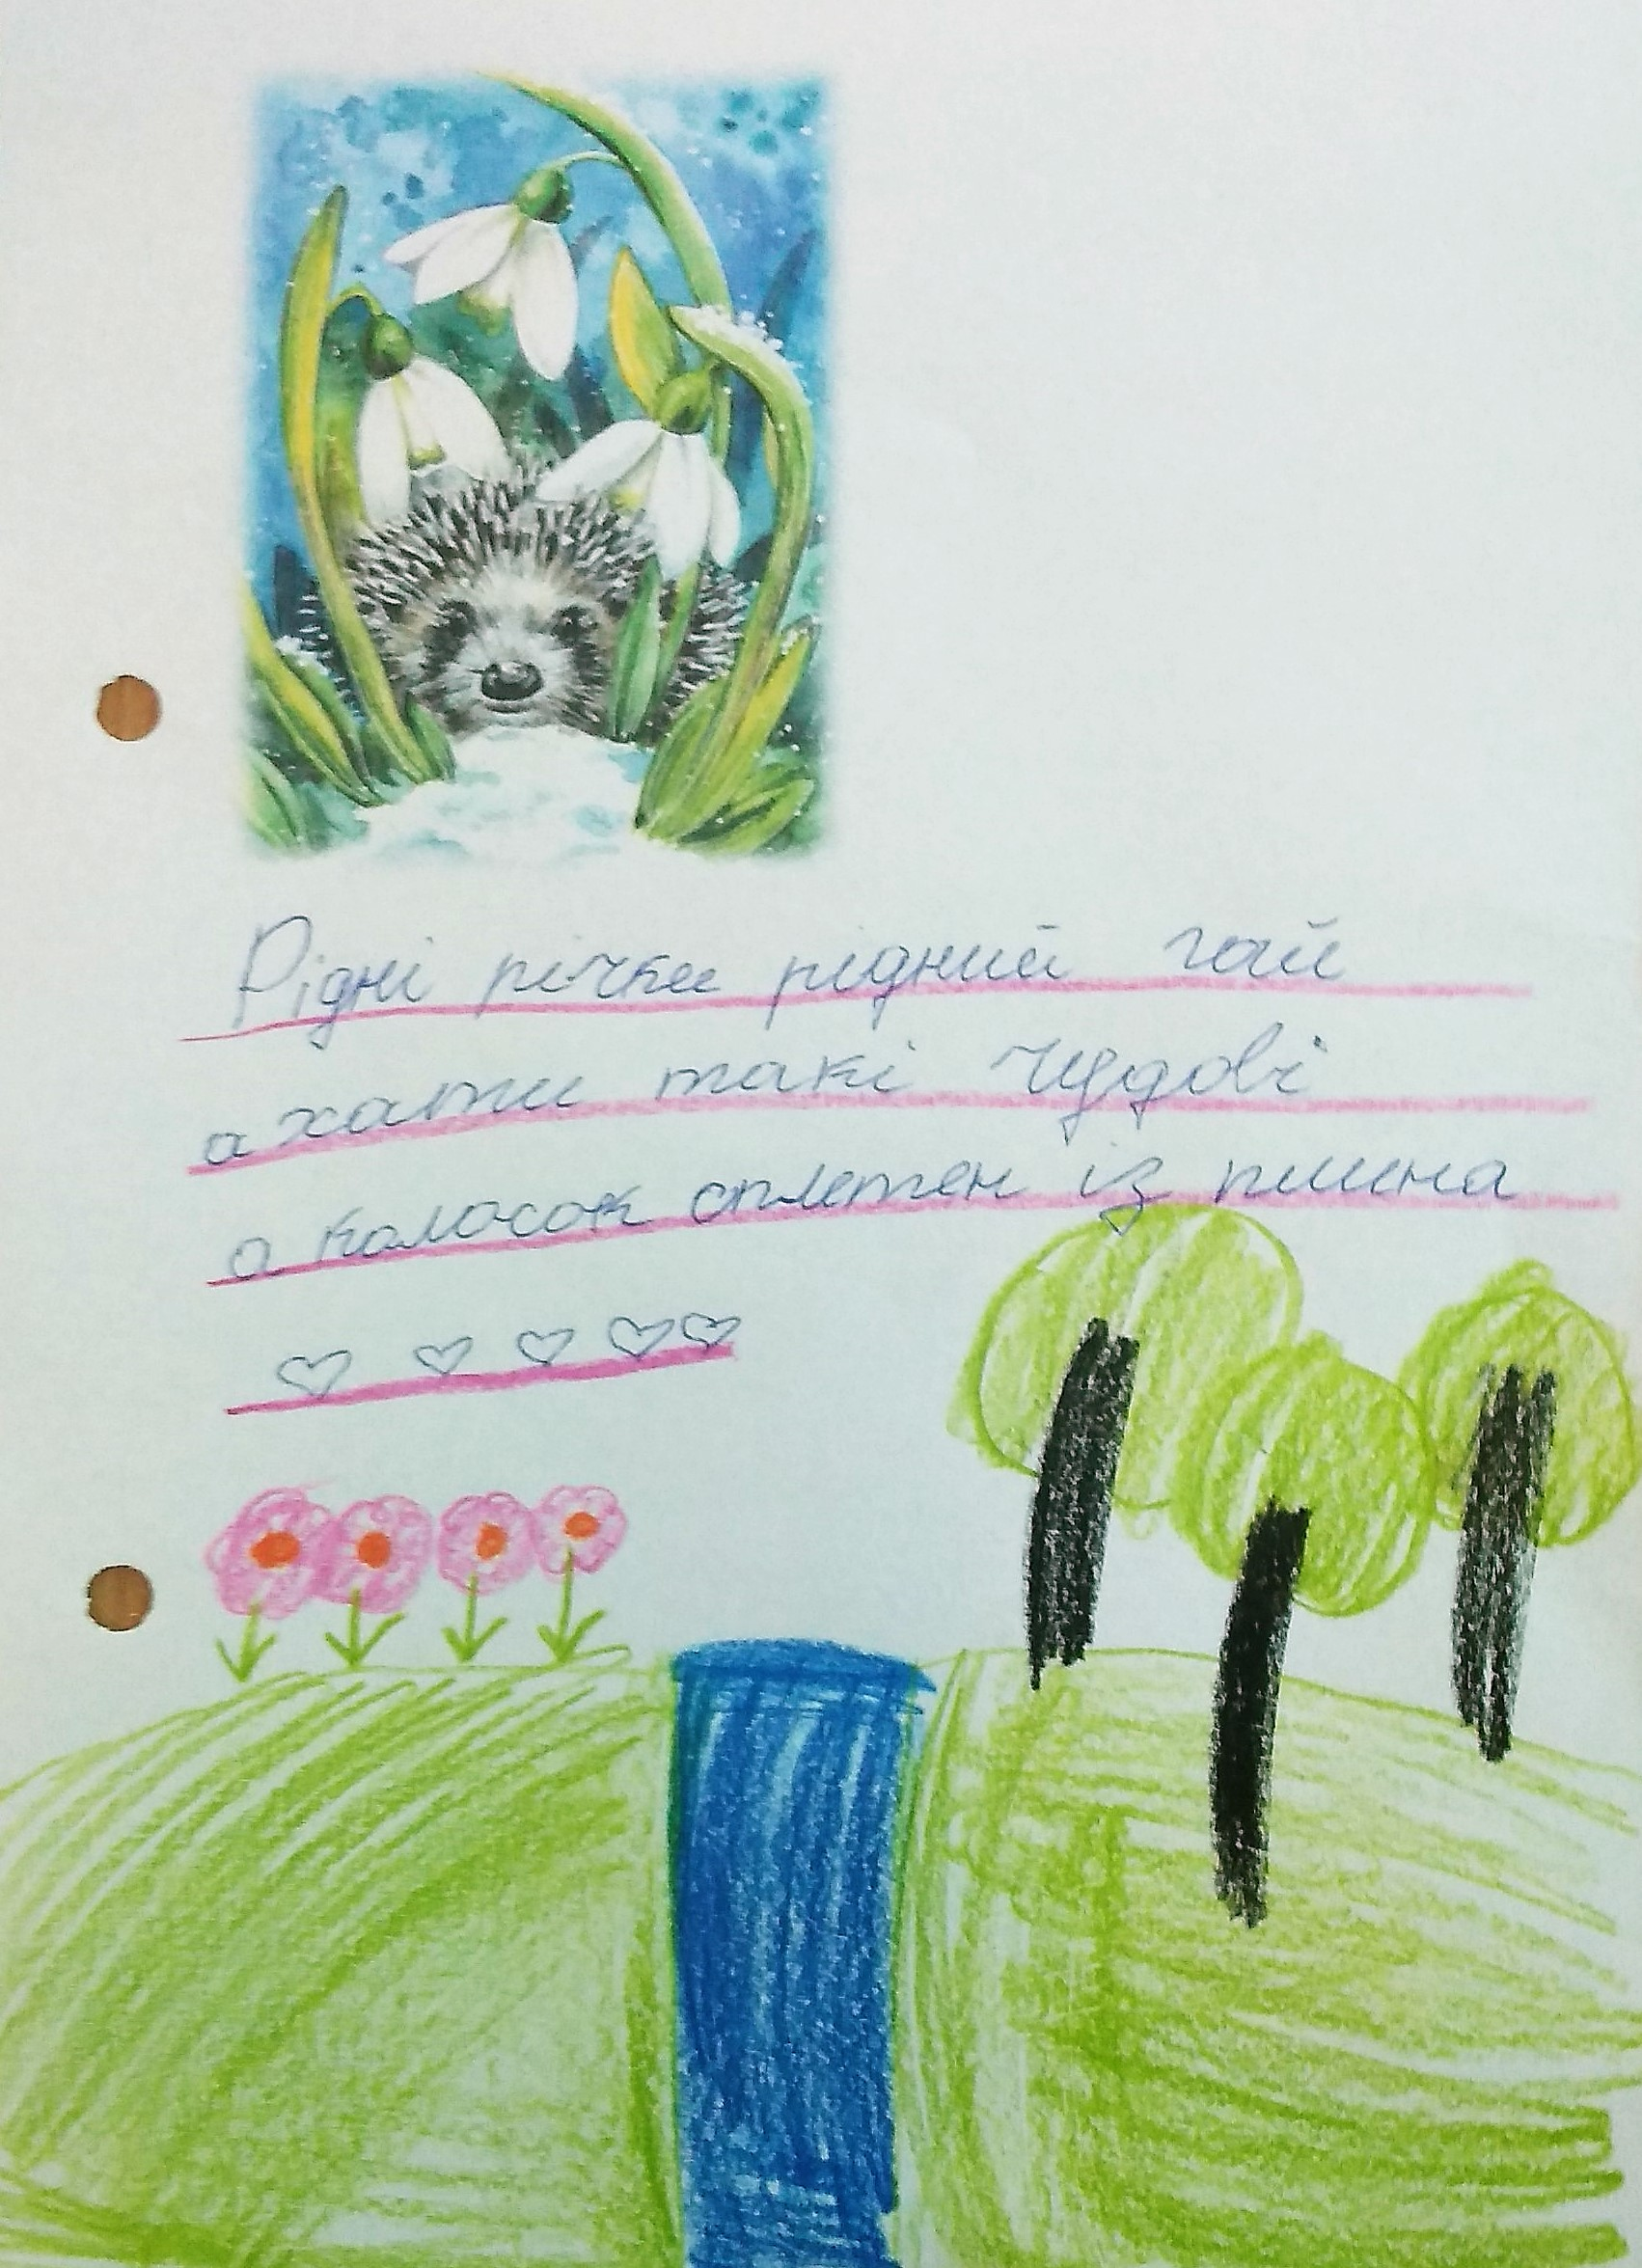 Рідні річки рідний гай
а хати такі чудові
а колосок сплетен із пшина